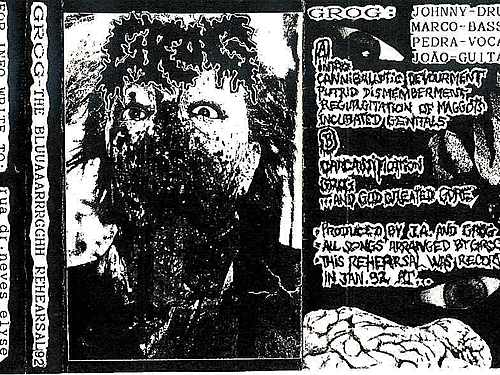 FOR INFO WRITE TO: rua dr.neves elyse
GROG-THE BLUUAAARRRCGHH REHEARSAL92
GROG
GROG:
JOHNNY-DRU
MARCO-BASS
PEDRA-VOCA
JOÃO-GUITA
A
INTRO
CANNIBALISTIC DEVOURMENT
PUTRID DISMEMBERMENT
REGURGITATION OF MAGGOTS
INCUBATED GENITALS
B
CARCASSIFICATION
GROG
...AND GOD CREATED GORE
PRODUCED BY J.A. AND GROG
ALL SONGS ARRANGED BY GROG
THIS REHEARSAL WAS RECOR
IN JAN. 92 AT...